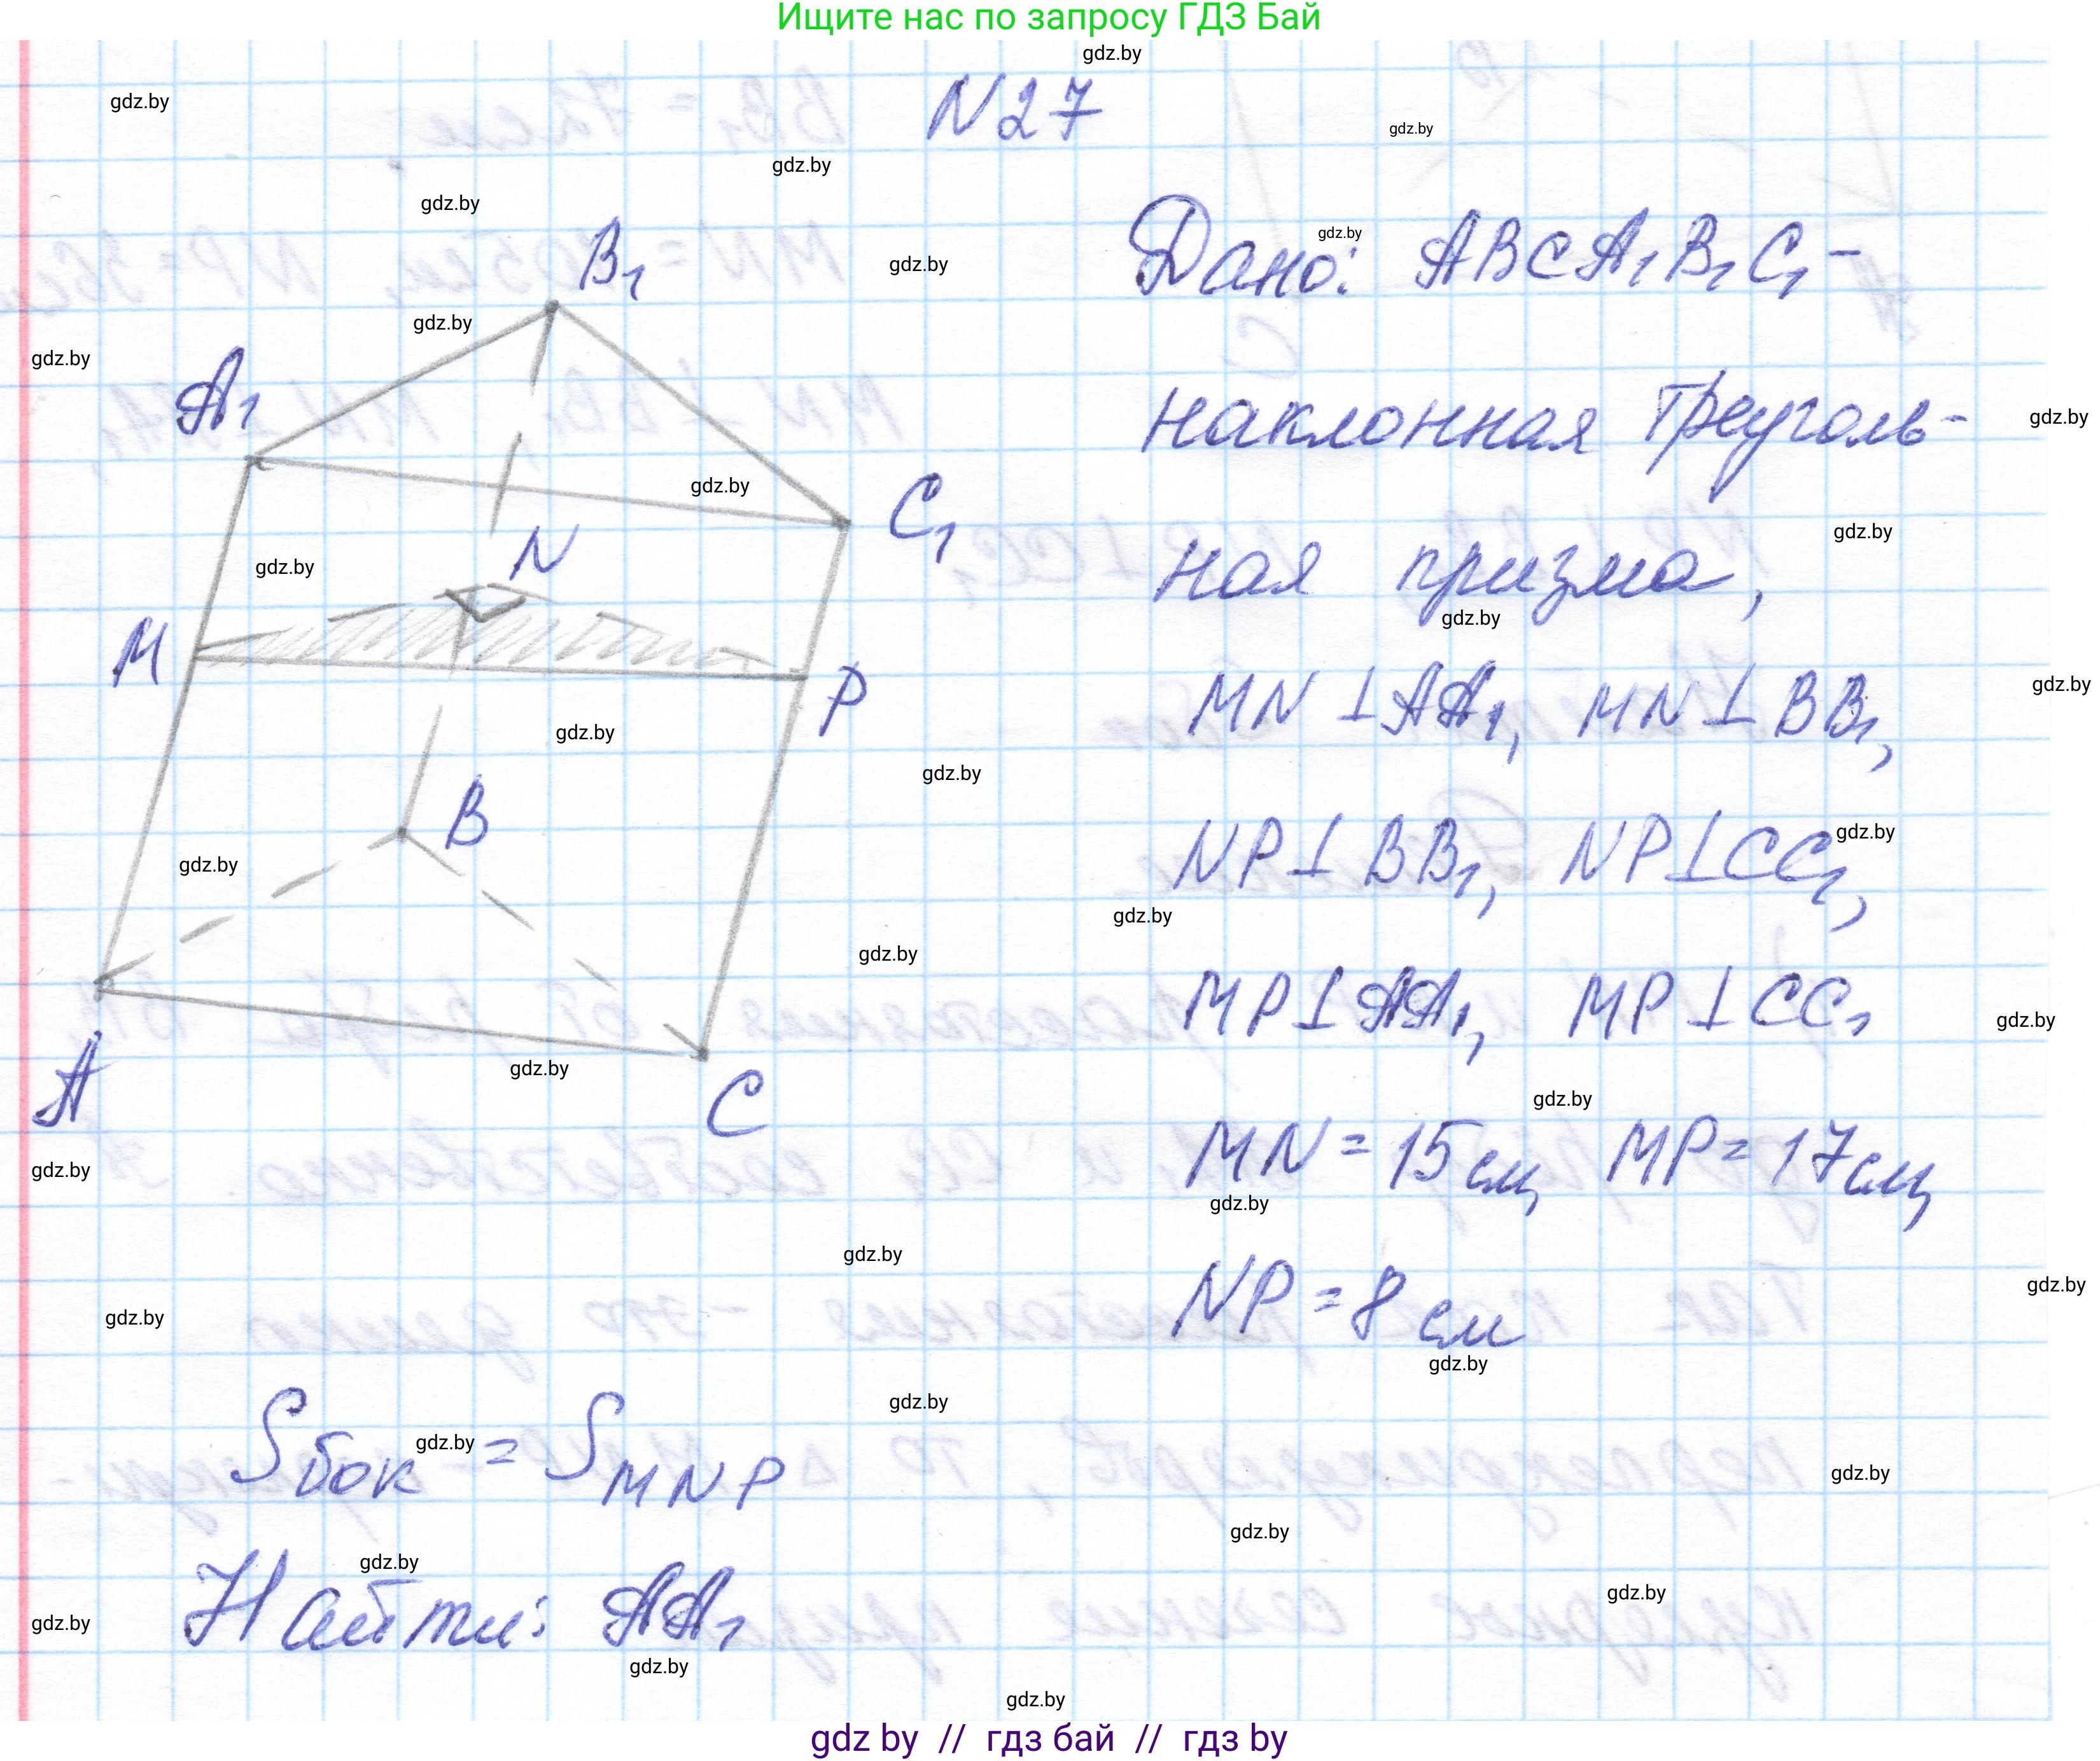 Ищите нас по запросу ГДЗ Бай
N27
Дано: ABCA₁B₁C₁ –
наклонная треуголь-
ная призма,
MN ⊥ AA₁, MN ⊥ BB₁,
NP ⊥ BB₁, NP ⊥ CC₁,
MP ⊥ AA₁, MP ⊥ CC₁
MN = 15 см, MP = 17 см,
NP = 8 см
B₁
A₁
C₁
N
M
P
B
A
C
Sбок = SMNP
Найти: AA₁
gdz.by
gdz by // гдз бай // гдз by